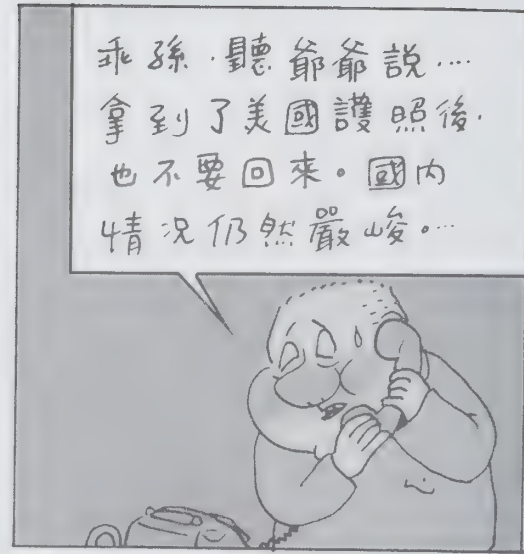 乖孫·聽爺爺說....
拿到了美國護照後.
也不要回來。國內
情况仍然嚴峻。...